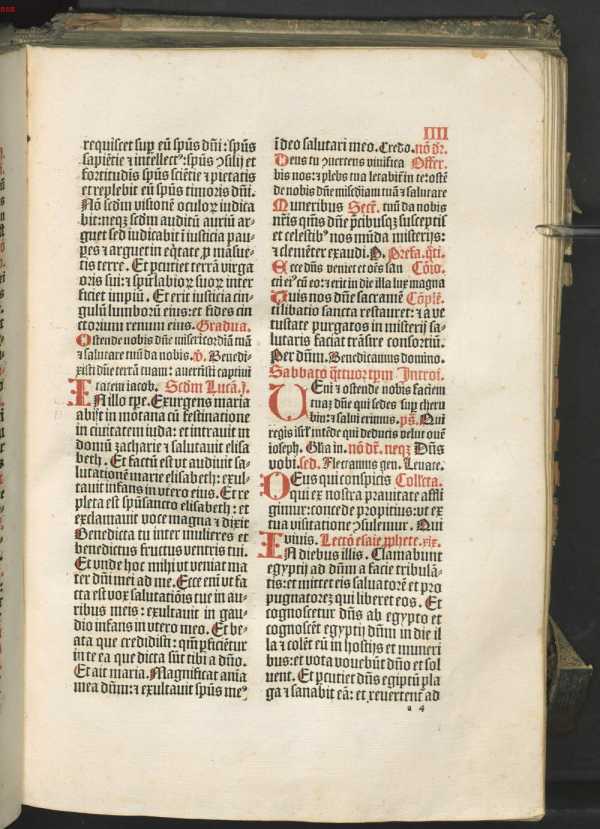 IIII
requiescet sup eū spūs dñi : spūs
sapiētie ⁊ intellectꝰ: spūs ꝯsilij et
fortitudis spūs sciētie ⁊ pietatis
et replebit eū spūs timoris dñi.
Nō scdm visionē oculoꝝ iudica
bit: neqꝫ scdm auditū auriū ar⸗
guet sed iudicabit ī iusticia pau⸗
ꝑes ⁊ arguet in eq̄tate ꝓ māsue⸗
tis terre. Et ꝑcutiet terrā virga
oris sui: ⁊ spū labioꝝ suoꝝ inter
ficiet impiū. Et erit iusticia cin⸗
gulū lumborū eius: et fides cin
ctorium renum eius. Gradua.
Ostende nobis dñe misericordiā tuā
⁊ salutare tuū da nobis. v̄. Benedi⸗
xisti dñe terrā tuam: auertisti captiui
tatem iacob. Scdm Lucā. j.
IN illo tpe. Exurgens maria
abijt in mōtana cū festinatione
in ciuitatem iuda: et intrauit in
domū zacharie ⁊ salutauit elisa
beth. Et factū est vt audiuit sa⸗
lutationē marie elisabeth: exul⸗
tauit infans in vtero eius. Et re
pleta est spū sancto elisabeth: et
exclamauit voce magna ⁊ dixit
Benedicta tu inter mulieres et
benedictus fructus ventris tui.
Et vnde hoc mihi vt veniat ma
ter dñi mei ad me. Ecce enī vt fa
cta est vox salutatiōis tue in au⸗
ribus meis: exultauit in gau⸗
dio infans in vtero meo. Et be⸗
ata que credidisti: qm̄ ꝑficiētur
in te ea que dicta sūt tibi a dño.
Et ait maria. Magnificat anīa
mea dñm: ⁊ exultauit spūs meꝰ
ī deo salutari meo. Credo. nō dr̄.
Deus tu ꝯuertens viuifica Offer.
bis nos: ⁊ plebs tua letabit̄ in te: ostē
de nobis dñe mīsdiam tuā ⁊ salutare
Muneribus Secr̄. tuū da nobis
nr̄is qm̄s dñe p̄cibusqꝫ susceptis
et celestibꝰ nos mūda misterijs:
⁊ clemēter exaudi. P. Prefa. q̄ti.
Ecce dñs veniet et oēs san Cōio.
cti eiꝰ cū eo: ⁊ erit in die illa lux magna
Quis nos dñe sacramē Cōple.
ti libatio sancta restauret: ⁊ a ve
tustate purgatos in misterij sa⸗
lutaris faciat trāsire consortiū.
Per dñm. Benedicamus domino.
Sabbato q̄ttuoꝝ tꝑm Introi.
VEni ⁊ ostende nobis faciem
tuaꝫ dñe qui sedes suꝑ cheru
bin: ⁊ salui erimus. ps̄. Qui
regis isrl̄ intēde qui deducis velut ouē
ioseph. Glia in. nō dr̄. neqꝫ Dñs
vobi. sed. Flectamus gen. Leuate.
DEus qui conspicis Collecta.
qui ex nostra prauitate affli
gimur: concede propitius: vt ex
tua visitatione ꝯsulemur. Qui
viuis. Lectō esaie ꝓphete. xix.
IN diebus illis. Clamabunt
egyptij ad dñm a facie tribulā⸗
tis: et mittet eis saluatorē et pro
pugnatoreꝫ qui liberet eos. Et
cognoscetur dñs ab egypto et
cognoscēt egyptij dñm in die il
la ⁊ colēt eū in hostijs et muneri
bus: et vota vouebūt dño et sol
uent. Et ꝑcutiet dñs egiptū pla
ga ⁊ sanabit eā: et reuertent̄ ad
a 4